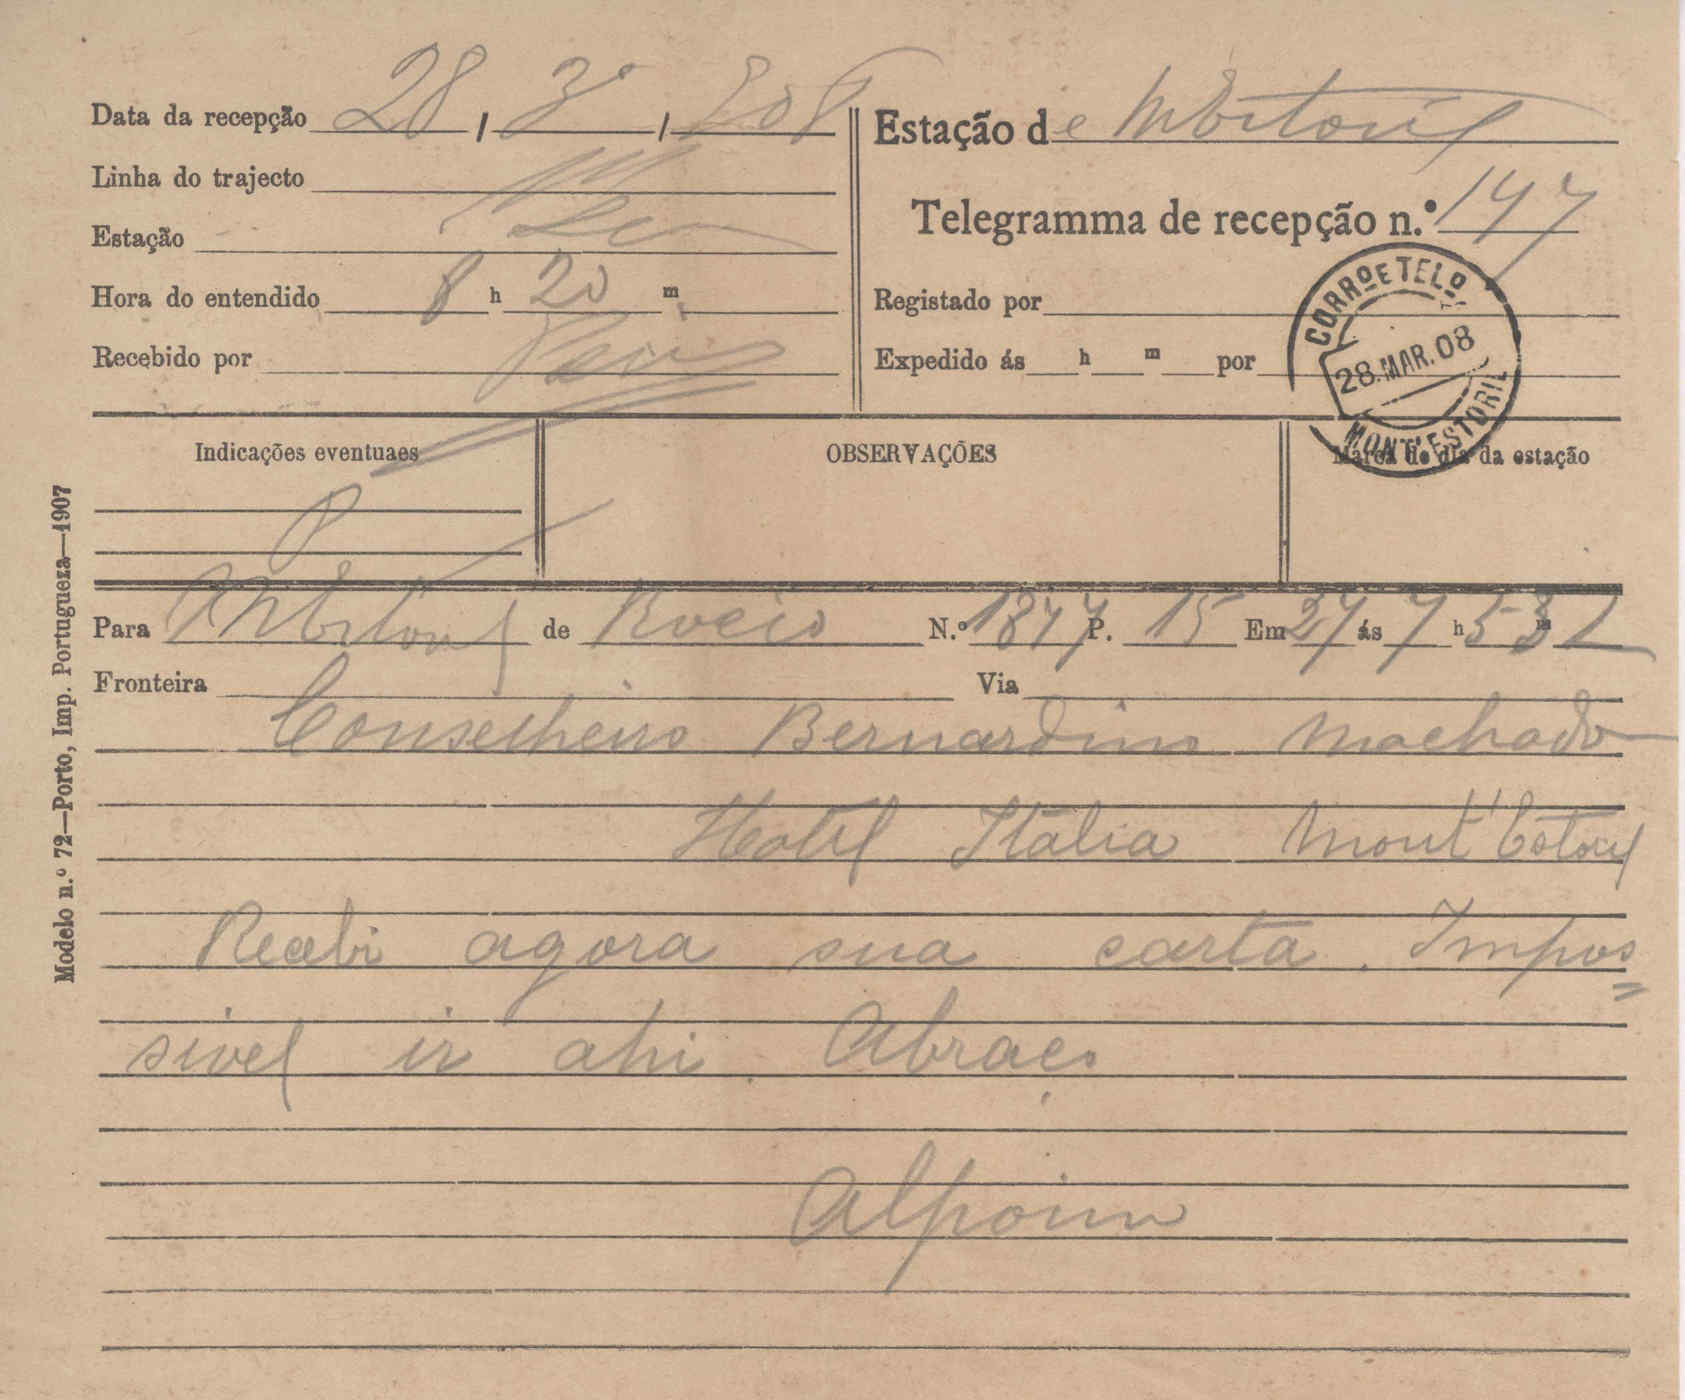 Data da recepção 28, 3º, 908
Linha do trajecto
Estação
Hora do entendido 8 h 20 m
Recebido por
Estação de MEstoril
Telegramma de recepção n.º 147
Registado por
Expedido ás h m por
CORRº E TELº
28.MAR.08
MONT'ESTORIL
Indicações eventuaes
OBSERVAÇÕES
Marca do dia da estação
P
Para MEstoril de Rocio N.º 1847 P. 15 Em 27 ás 7 h 53 m
Fronteira Via
Conselheiro Bernardino Machado
Hotel Italia Mont'Estoril
Recebi agora sua carta. Impos=
sivel ir ahi. Abraço
Alpoim
Modelo n.º 72—Porto, Imp. Portugueza—1907